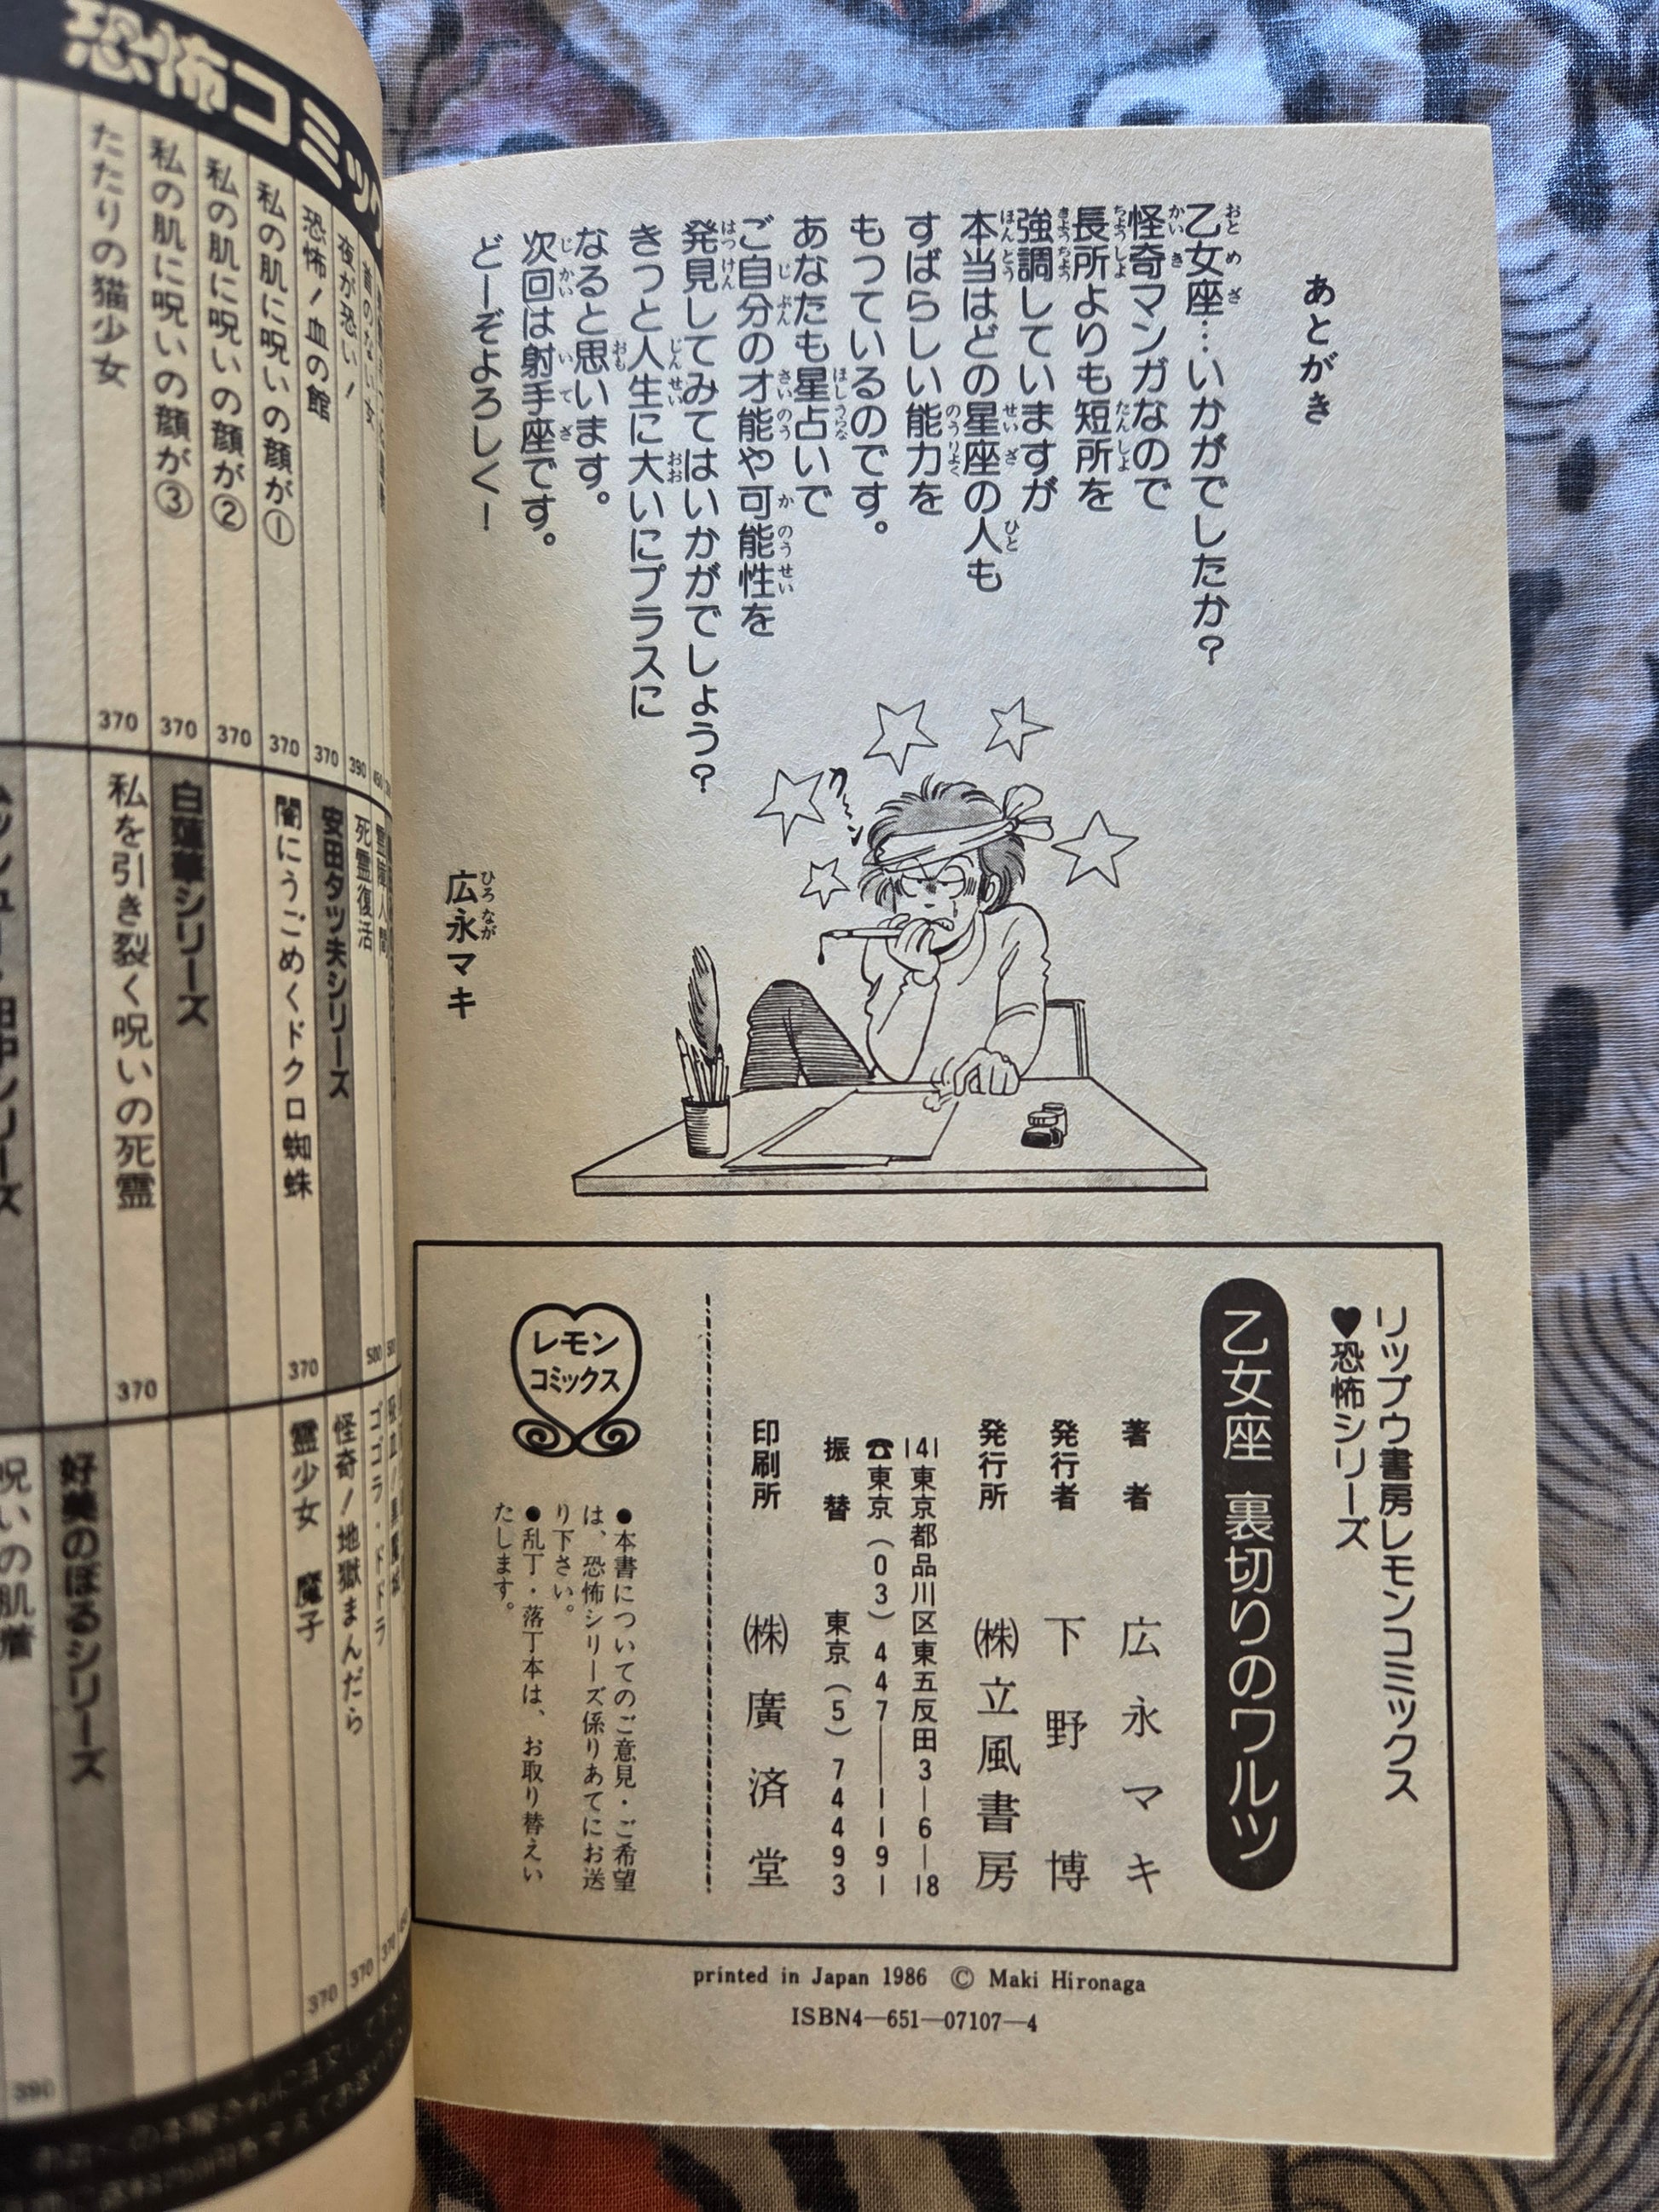 あとがき
乙女座…いかがでしたか？
怪奇マンガなので
長所よりも短所を
強調していますが
本当はどの星座の人も
すばらしい能力を
もっているのです。
あなたも星占いで
ご自分の才能や可能性を
発見してみてはいかがでしょう？
きっと人生に大いにプラスに
なると思います。
次回は射手座です。
どーぞよろしくー
広永マキ
リップウ書房レモンコミックス
♥恐怖シリーズ
乙女座 裏切りのワルツ
著者 広永マキ
発行者 下野博
発行所 ㈱立風書房
141東京都品川区東五反田3―6―18
☎東京(03)447―1191
振替 東京(5)74493
印刷所 ㈱廣済堂
レモン
コミックス
●本書についてのご意見・ご希望
は、恐怖シリーズ係りあてにお送
り下さい。
●乱丁・落丁本は、お取り替えい
たします。
printed in Japan 1986 © Maki Hironaga
ISBN4―651―07107―4
恐怖コミック
首のない女
夜が恐い！ 390
恐怖！血の館 370
私の肌に呪いの顔が① 370
私の肌に呪いの顔が② 370
私の肌に呪いの顔が③ 370
たたりの猫少女 370
死霊復活 500
安田タツ夫シリーズ
闇にうごめくドクロ蜘蛛 370
シリーズ
私を引き裂く呪いの死霊 370
ゴゴラ・ドドラ 370
怪奇！地獄まんだら 370
霊少女 魔子 370
好美のぼるシリーズ
呪いの肌着 390